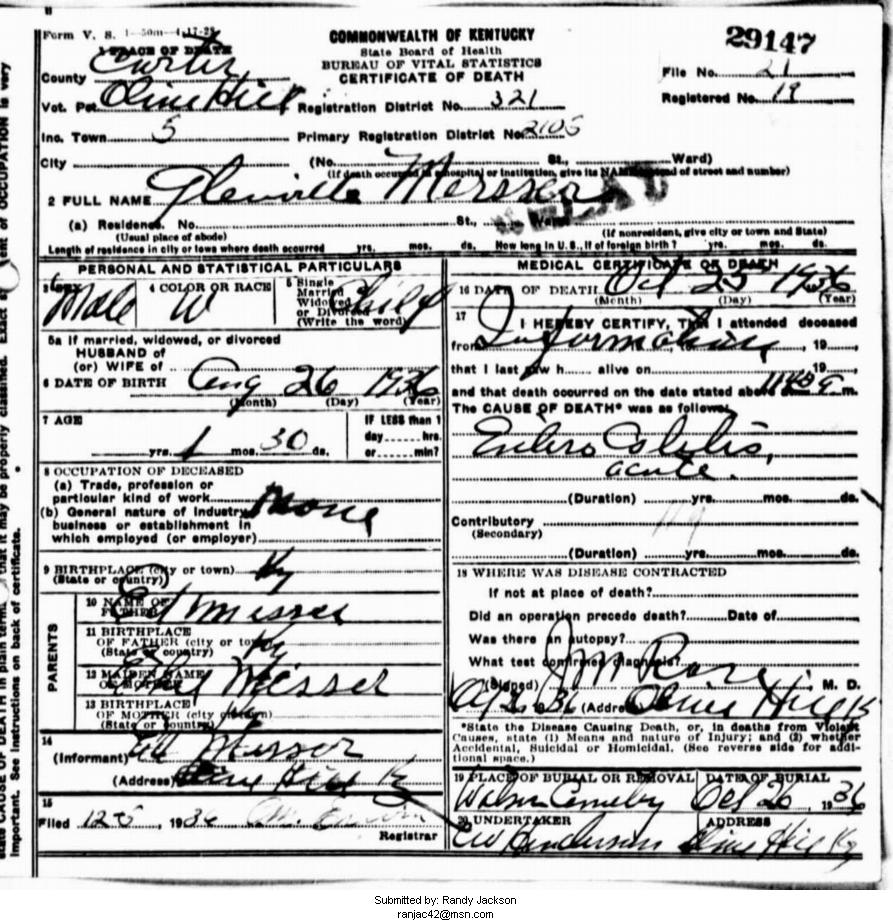 Form V. S. 1-50m-4-17-28
COMMONWEALTH OF KENTUCKY
State Board of Health
BUREAU OF VITAL STATISTICS
CERTIFICATE OF DEATH
29147
File No. 21
Registered No. 19
1 PLACE OF DEATH
County Carter
Vot. Pct Olive Hill Registration District No. 321
Inc. Town 5 Primary Registration District No. 2105
City (No. St., Ward)
(If death occurred in a hospital or institution, give its NAME instead of street and number)
2 FULL NAME Messer
(a) Residence. No. St., Ward
(Usual place of abode) (If nonresident, give city or town and State)
Length of residence in city or town where death occurred yrs. mos. ds. How long in U. S., if of foreign birth? yrs. mos. ds.
PERSONAL AND STATISTICAL PARTICULARS
3 SEX Male
4 COLOR OR RACE W
5 Single
Married
Widowed
or Divorced
(Write the word)
Child
5a If married, widowed, or divorced
HUSBAND of
(or) WIFE of
6 DATE OF BIRTH Aug 26 1936
(Month) (Day) (Year)
7 AGE
yrs. 1 mos. 30 ds.
IF LESS than 1
day hrs.
or min?
8 OCCUPATION OF DECEASED
(a) Trade, profession or
particular kind of work
(b) General nature of industry
business or establishment in
which employed (or employer)
None
9 BIRTHPLACE (city or town)
(State or country) Ky
PARENTS
10 NAME OF
FATHER Ed Messer
11 BIRTHPLACE
OF FATHER (city or town)
(State or country) Ky
12 MAIDEN NAME
OF MOTHER Messer
13 BIRTHPLACE
OF MOTHER (city or town)
(State or country) Ky
14
(Informant) Ed Messer
(Address) Olive Hill Ky
15
Filed 1936
Registrar
MEDICAL CERTIFICATE OF DEATH
16 DATE OF DEATH Oct 25 1936
(Month) (Day) (Year)
17 I HEREBY CERTIFY, That I attended deceased
from Information, 19
that I last saw h alive on 19
and that death occurred on the date stated above m.
The CAUSE OF DEATH* was as follows:
Entero Colitis,
acute.
(Duration) yrs. mos. ds.
Contributory 119
(Secondary)
(Duration) yrs. mos. ds.
18 WHERE WAS DISEASE CONTRACTED
If not at place of death?
Did an operation precede death? Date of
Was there an autopsy?
What test confirmed diagnosis?
(Signed) J M Rose M. D.
1936 (Address) Olive Hill Ky
*State the Disease Causing Death, or, in deaths from Violent
Causes, state (1) Means and nature of Injury; and (2) whether
Accidental, Suicidal or Homicidal. (See reverse side for addi-
tional space.)
19 PLACE OF BURIAL OR REMOVAL
DATE OF BURIAL
Cemetery Oct 26, 1936
20 UNDERTAKER
ADDRESS
Henderson Olive Hill Ky
Submitted by: Randy Jackson
ranjac42@msn.com